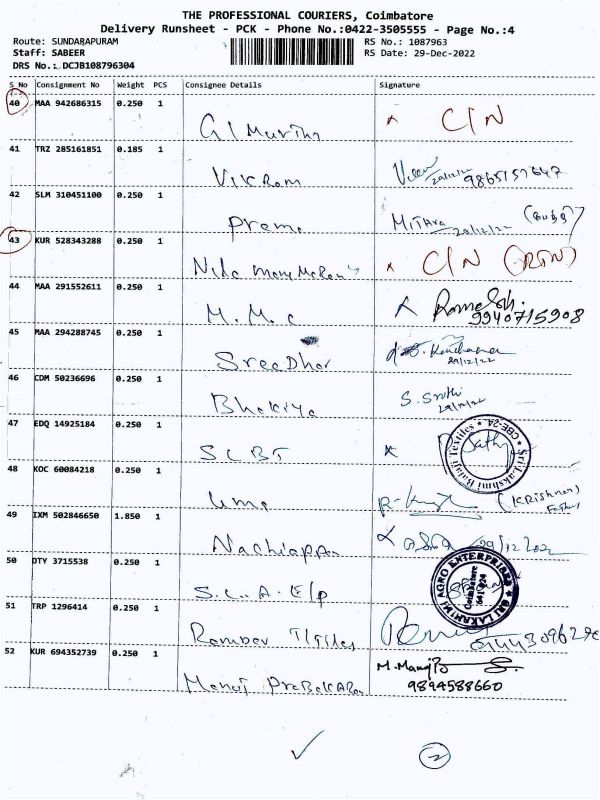 THE PROFESSIONAL COURIERS, Coimbatore
Delivery Runsheet - PCK - Phone No.:0422-3505555 - Page No.:4
Route: SUNDARAPURAM RS No.: 1087963
Staff: SABEER RS Date: 29-Dec-2022
DRS No.: DCJB108796304
S No Consignment No Weight PCS Consignee Details Signature
40 MAA 942686315 0.250 1 C/N
41 TRZ 285161851 0.185 1 Vikram
42 SLM 310451100 0.250 1 Prema Mithra 29/12/22
43 KUR 528343288 0.250 1 C/N (RTN)
44 MAA 291552611 0.250 1 M.M.C Ramesh. 9940715908
45 MAA 294288745 0.250 1 SreeDhar 29/12/22
46 CDM 50236696 0.250 1 Bhakiya 29/12/22
47 EDQ 14925184 0.250 1 SLBT Sri Lakshmi Balaji Textiles CBE-24
48 KOC 60084218 0.250 1 Uma (Krishnan) Father
49 IXM 502846650 1.850 1 Nachiappan 29/12/2022
50 DTY 3715538 0.250 1 SRI LAKSHMI AGRO ENTERPRISES Coimbatore 641 024
51 TRP 1296414 0.250 1
52 KUR 694352739 0.250 1 Manoj PrabakaRan M. Manoj 9894588660
2